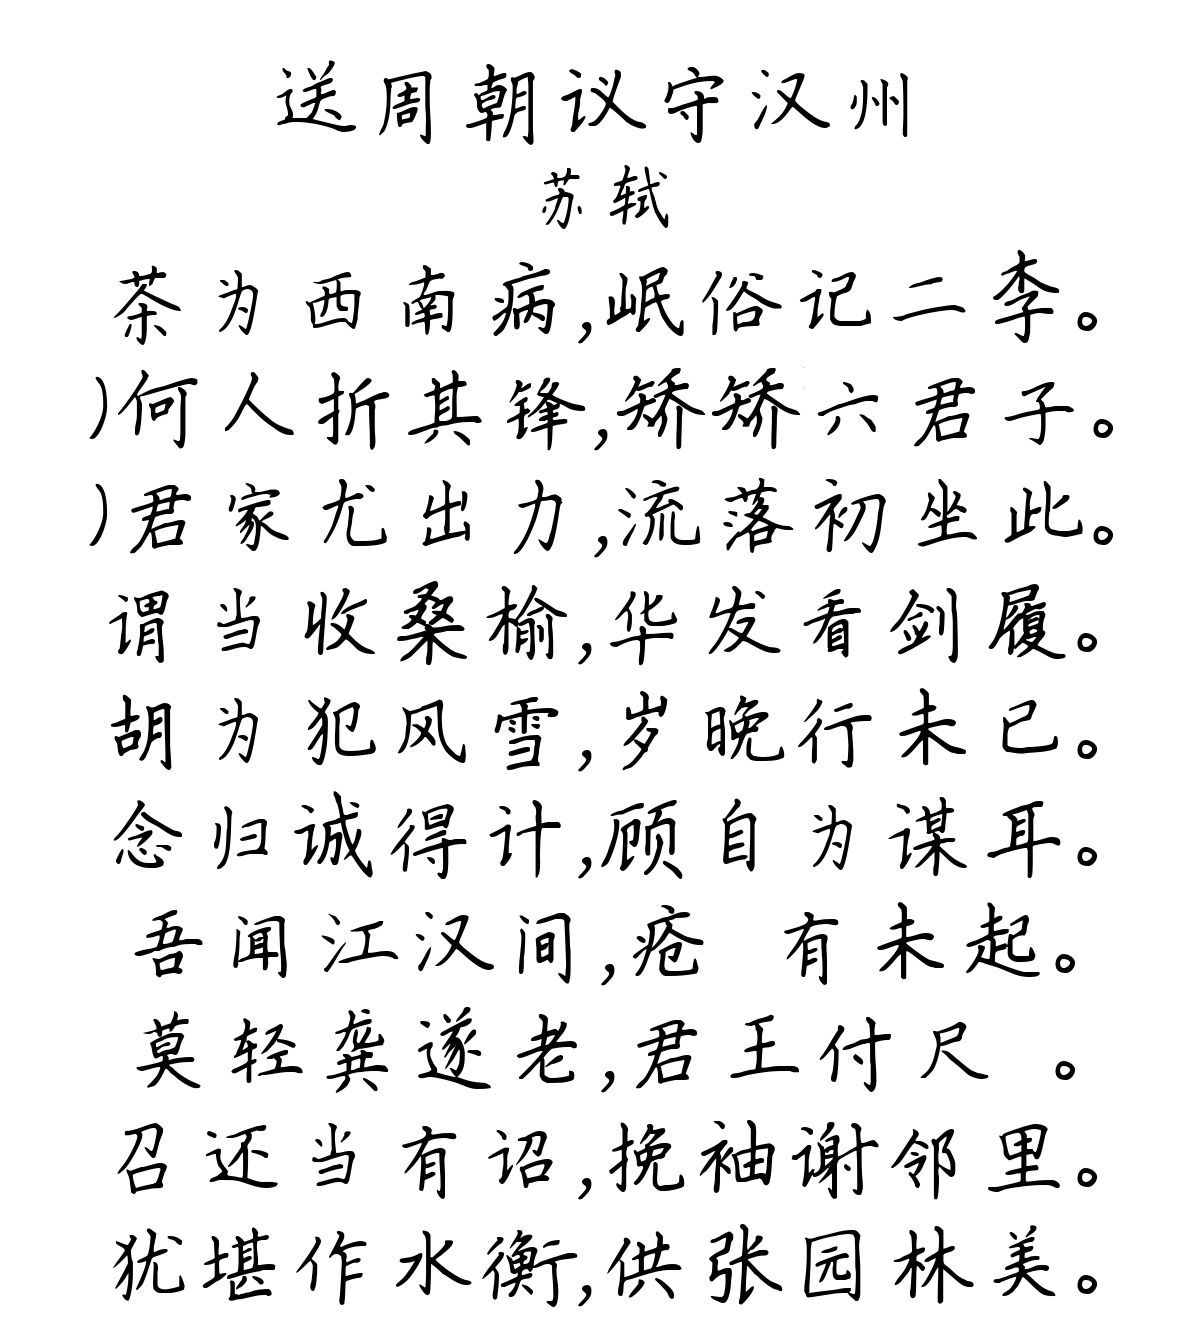 送周朝议守汉州
苏轼
茶为西南病,岷俗记二李。
)何人折其锋,矫矫六君子。
)君家尤出力,流落初坐此。
谓当收桑榆,华发看剑履。
胡为犯风雪,岁晚行未已。
念归诚得计,顾自为谋耳。
吾闻江汉间,疮 有未起。
莫轻龚遂老,君王付尺 。
召还当有诏,挽袖谢邻里。
犹堪作水衡,供张园林美。